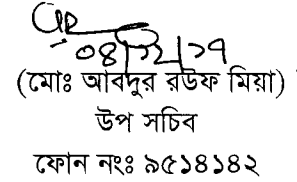 ০৪/১২/১৭
(মোঃ আবদুর রউফ মিয়া)
উপ সচিব
ফোন নংঃ ৯৫১৪১৪২